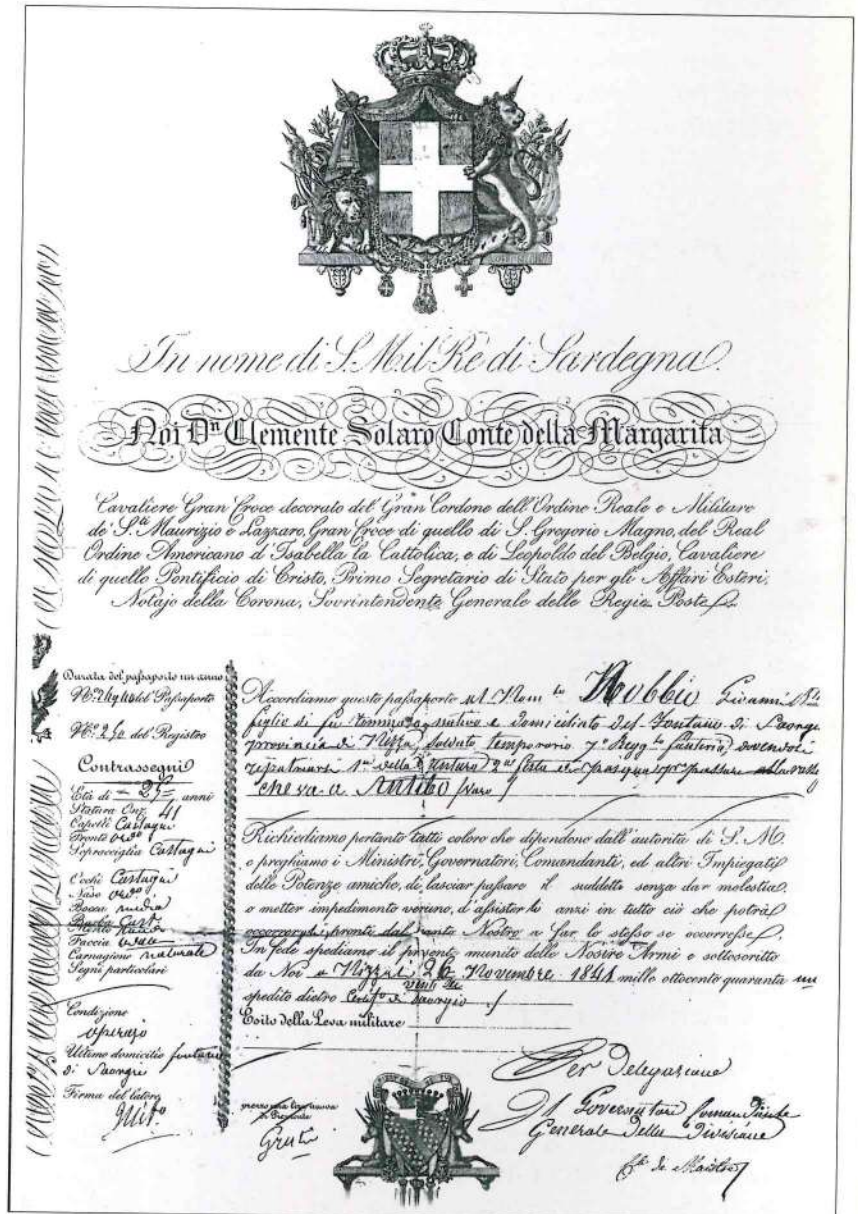 In nome di S. M. il Rè di Sardegna.
Noi Dn Clemente Solaro Conte della Margarita
Cavaliere Gran Croce decorato del Gran Cordone dell'Ordine Reale e Militare
de' S.ti Maurizio e Lazzaro, Gran Croce di quello di S. Gregorio Magno, del Real
Ordine Americano d'Isabella la Cattolica, e di Leopoldo del Belgio, Cavaliere
di quello Pontificio di Cristo, Primo Segretario di Stato per gli Affari Esteri,
Notajo della Corona, Sovrintendente Generale delle Regie Poste
Durata del passaporto un anno
N.º del Passaporto
N.º 250 del Registro
Contrassegni
Età di = 25 = anni
Statura Onz. 41
Capelli Castagni
Fronte
Sopracciglia Castagni
Occhi Castagni
Naso
Bocca media
Barba Cast.
Mento
Faccia ovale
Carnagione naturale
Segni particolari
Condizione
operajo
Ultimo domicilio fontano
di Saorgio
Firma del latore
Accordiamo questo passaporto al Nom.to Giovanni
figlio di fu Tommaso nativo e domiciliato del Fontano di Saorgio
provincia di Nizza, Soldato temporario 7 Regg.to fanteria, dovendoli
repatriarsi 1a della ventura 2a festa di pasqua
che va a Antibo (Varo)
Richiediamo pertanto tutti coloro che dipendono dall'autorità di S. M.
e preghiamo i Ministri, Governatori, Comandanti, ed altri Impiegati
delle Potenze amiche, di lasciar passare il suddetto senza dar molestia
o metter impedimento veruno, d'assisterlo anzi in tutto ciò che potrà
occorrergli, pronti dal canto Nostro a far lo stesso se occorresse.
In fede spediamo il presente munito delle Nostre Armi e sottoscritto
da Noi a Nizza li 26 Novembre 1841 mille ottocento quaranta un
venti sei
spedito dietro Certif.o di Saorgio
Esito della Leva militare
prezzo una lira nuova
di Piemonte
Gratis
Per Delegazione
Il Governatore Comandante
Generale della Divisione
de Maistre